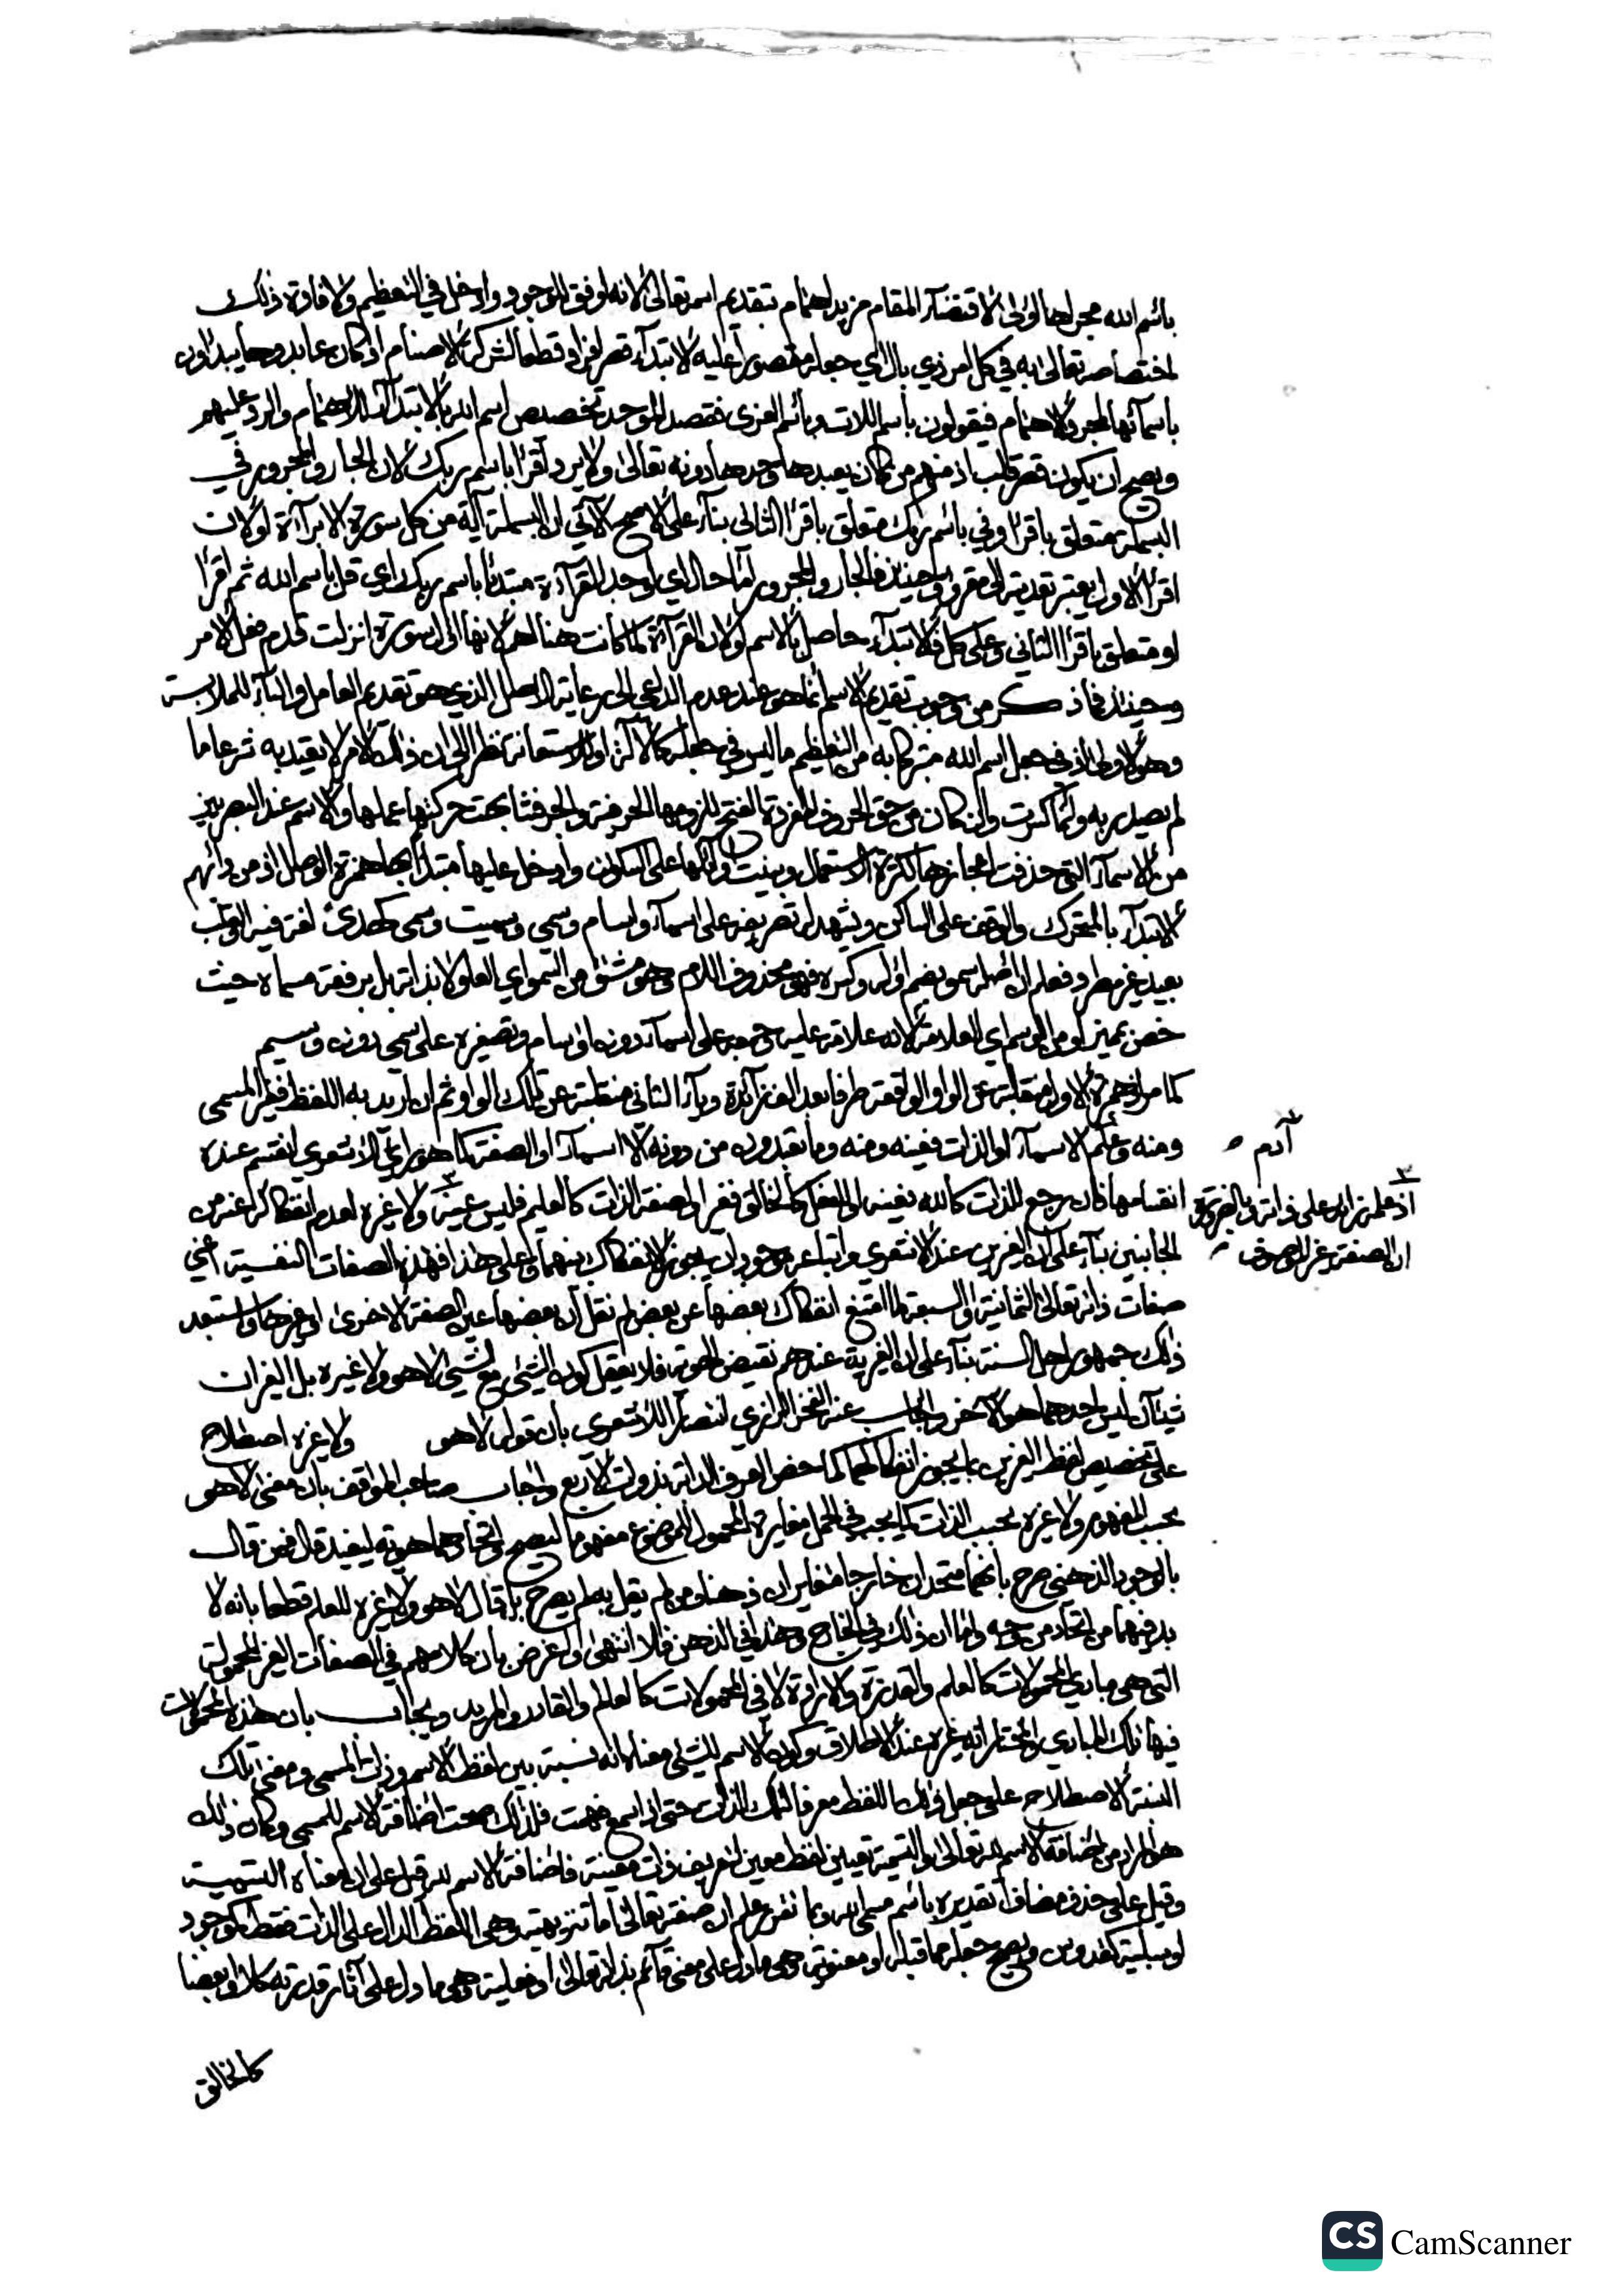 باسم الله مجراها أولى لاقتضاء المقام مزيد اهتمام بتقديم اسمه تعالى لأنه أوفق للوجود وادخل في التعظيم ولافادة ذلك
اختصاصه تعالى به في كل امر ذي بال اي جعله مقصورا عليه الابتداء قصر افراد قطعا لشركة الاصنام اذ كان عابدوها يبدؤن
بأسمائها لمجرد الاهتمام فيقولون باسم اللات وباسم العزى فقصد الموحد تخصيص اسم الله بالابتداء للاهتمام والرد عليهم
ويصح ان يكون قصر قلب اذ منهم من كان يعبدها وحدها دونه تعالى ولا يرد اقرا باسم ربك لان الجار والمجرور في
البسملة متعلق باقرا وفي باسم ربك متعلق باقرأ الثاني بناء على الاصح الآتي ان البسملة آية من كل سورة الا براءة او لان
اقرأ الاول يعتبر تعديته الى مقروء وحينئذ فالجار والمجرور اما حال اي اوجد القرآءة مبتدئا باسم ربك اي قل باسم الله ثم اقرأ
او متعلق باقرأ الثاني وعلى كل فالابتداء حاصل بالاسم او لان القراءة لما كانت هنا اهم لانها اول سورة انزلت قدم فعل الامر
وحينئذ فما ذكر من وجوب تقديم الاسم انما هو عند عدم الداعي الى رعاية الاصل الذي هو تقديم العامل والباء للملابسة
وهو الاولى اذ في جعل اسم الله متبركا به من التعظيم ما ليس في جعله كالآلة او للاستعانة نظرا الى ان ذلك الامر لا يعتد به شرعا ما
لم يصدر به وانما كسرت وان كان من حق الحروف المفردة الفتح للزومها الحرفية والجر فشابهت حركتها عملها والاسم عند البصريين
من الاسماء التي حذفت اعجازها لكثرة الاستعمال وبنيت اوائلها على السكون وادخل عليها مبتدأ بها همزة الوصل اذ من دأبهم
الابتداء بالمتحرك والوقف على الساكن ويشهد له تصريفه على اسماء واسام وسمي وسميت وسمى كهدى لغة فيه والقلب
بعيد غير مطرد فعلم ان اصله سمو بضم اوله وكسره فهو محذوف اللام وهو مشتق من السمو اي العلو لا بذاته بل برفعة مسماه حيث
خص بميز او من الوسم اي العلامة لانه علامة عليه وجمعه على اسماء دون اوسام وتصغيره على سمي دون وسيم
كما مر اذ همزة الاول منقلبة عن الواو الواقعة طرفا بعد الف زائدة وياء الثاني منقلبة عن تلك الواو ثم ان اريد به اللفظ فغير المسمى
ومنه وعلم الاسماء او الذات فعينه ومنه وما تعبدون من دونه الا اسماء او الصفة كما هو رأي الاشعري انقسم عنده
انقسامها فان رجع للذات كالله فعينه او الى الفعل كالخالق فغيره او لصفة الذات كالعليم فليس عينه ولا غيره لعدم انفكاك غيره من
الجانبين بناء على ان الغيرين عند الاشعري واتباعه موجودان يجوز الانفكاك بينهما وعلى هذا فهذه الصفات النفسية اعني
صفات ذاته تعالى الثمانية او السبعة لما امتنع انفكاك بعضها عن بعض لم نقل ان بعضها عين الصفة الاخرى او غيرها واستبعد
ذلك جمهور اهل السنة بناء على ان الغيرية عندهم نقيض الهوهو فلا يعقل كون الشيء مع شيء لا هو ولا غيره بل الغيران
شيئان ليس احدهما هو الآخر واجاب عنه الفخر الرازي انتصارا للاشعري بان قوله لا هو ولا غيره اصطلاح
على تخصيص لفظ الغيرين بما يجوز انفكاكهما كما خص العرف الدابة بذوات الاربع واجاب صاحب المواقف بان معنى لا هو
بحسب المفهوم ولا غيره بحسب الذات كما يجب في الحمل مغايرة المحمول للموضوع مفهوما ليصح واتحادهما هوية ليفيد قال فمن قال
بالوجود الذهني صرح بانهما متحدان خارجا متغايران ذهنا ومن لم يقل به لم يصرح بل قال لا هو ولا غيره للعلم قطعا بانه لا
بد فيهما من اتحاد من وجه واما ان ذلك في الخارج وهذا في الذهن فلا انتهى واعترض بان كلامهم في الصفات الغير المحمولة
التي هي مبادي المحمولات كالعلم والقدرة والارادة لا في المحمولات كالعالم والقادر والمريد ويجاب بان هذه المحمولات
فيها تلك المبادي والمختار انه غيره عند الاطلاق وكون الاسم للشيء معناه انه نسبة بين لفظ الاسم وذات المسمى ومعنى تلك
النسبة الاصطلاح على جعل ذلك اللفظ معرفا لتلك الذات حتى اذا سمع فهمت فلذلك صحت اضافة الاسم للمسمى وكان ذلك
هو المراد من اضافة الاسم لله تعالى والتسمية تعيين لفظ معين لتعريف ذات معينة فاضافة الاسم لله قيل على ان معناه التسمية
وقيل على حذف مضاف تقديره باسم مسمى الله وبما تقرر علم ان صفته تعالى اما تنزيهية وهي اللفظ الدال على الذات فقط كموجود
او سلبية كقدوس ويصح جعله مما قبله او معنوية وهي ما دل على معنى قائم بذاته تعالى او فعلية وهي ما دل على آثار قدرته كلا او بعضا
كالخالق
آدم
اذ علمه زائد على ذاته وبالضرورة
ان الصفة غير الموصوف
CS CamScanner